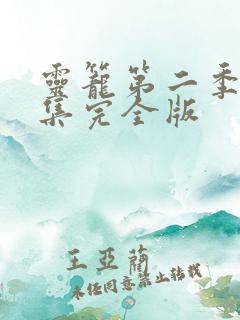 靈籠第二季
集完全版
王亞蘭
未经同意禁止转载